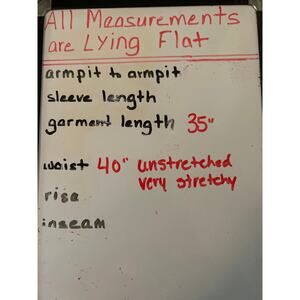 All Measurements
are Lying Flat
armpit to armpit
sleeve length
garment length 35"
waist 40" unstretched
very stretchy
rise
inseam